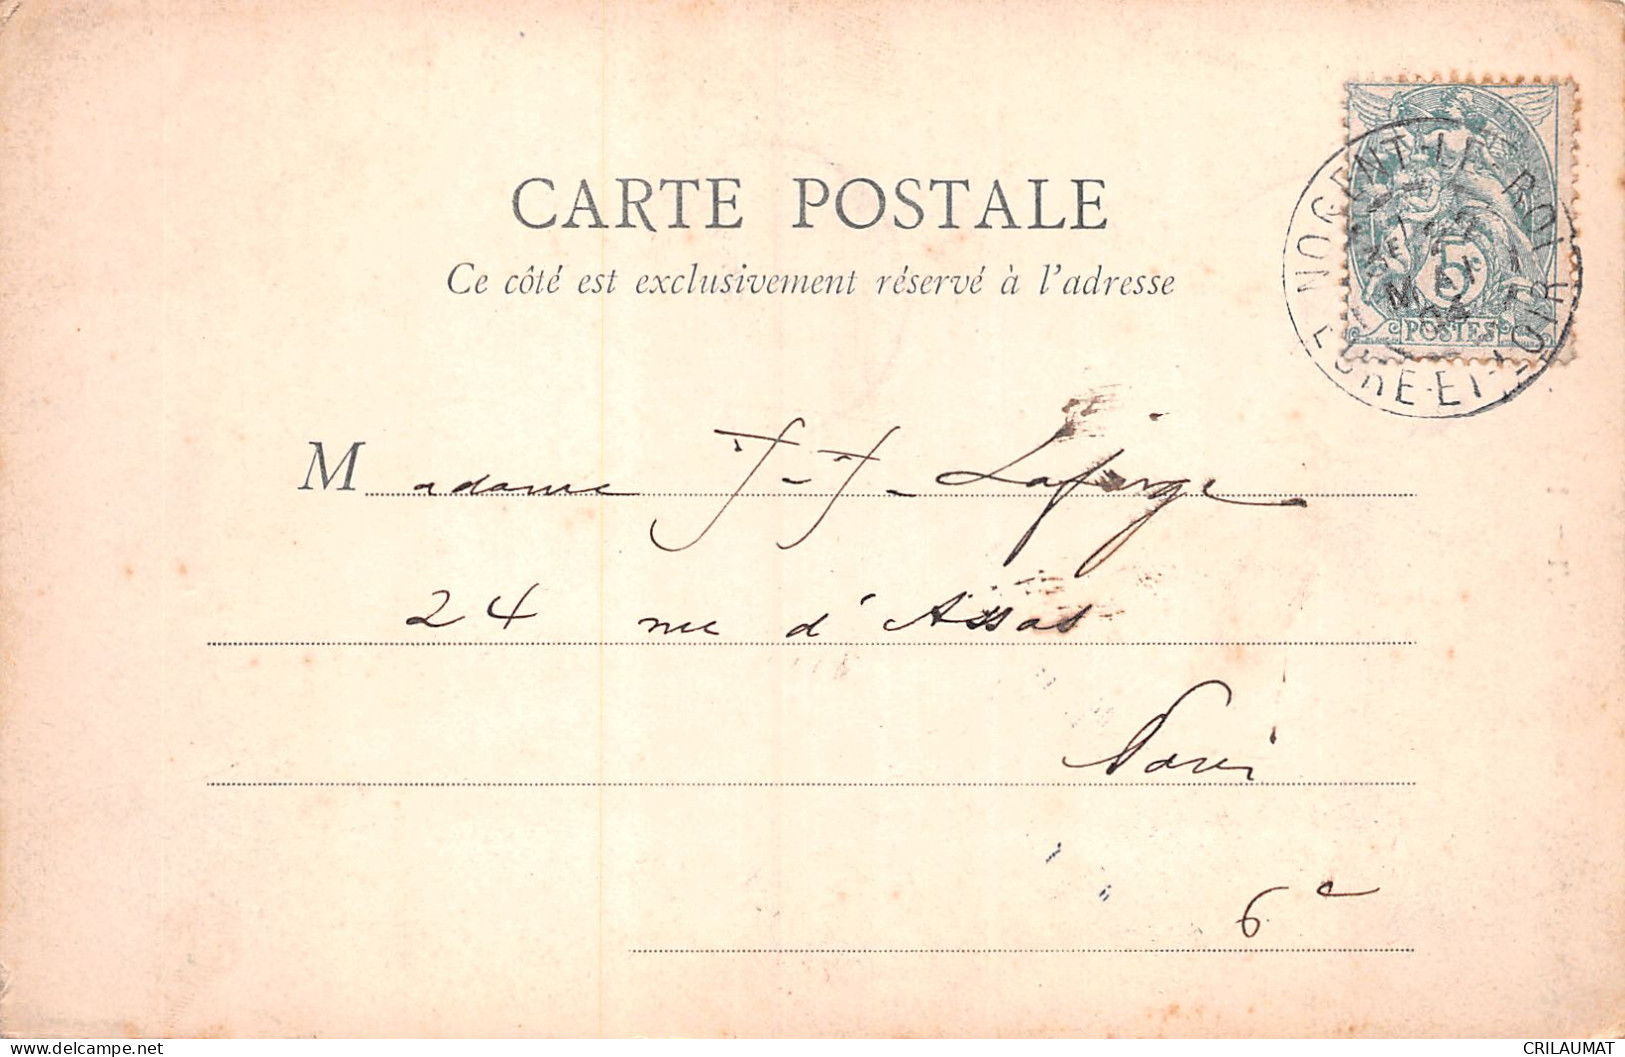 CARTE POSTALE
Ce côté est exclusivement réservé à l'adresse
NOGENT-LE-ROI
EURE-ET-LOIR
MAI
5
POSTES
Madame J-J- Laforge
24 rue d'Assas
Paris
6e
delcampe.net
CRILAUMAT